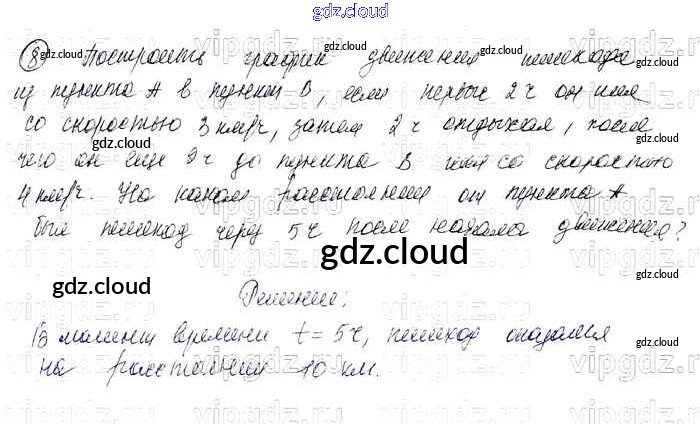 gdz.cloud
⑧ Построить график движения пешехода
из пункта А в пункт В, если первые 2 ч он шел
со скоростью 3 км/ч, затем 2 ч отдыхал, после
чего он еще 2 ч до пункта В шел со скоростью
4 км/ч. На каком расстоянии от пункта А
был пешеход через 5 ч после начала движения?
gdz.cloud
Решение:
В момент времени t = 5 ч, пешеход оказался
на расстоянии 10 км.